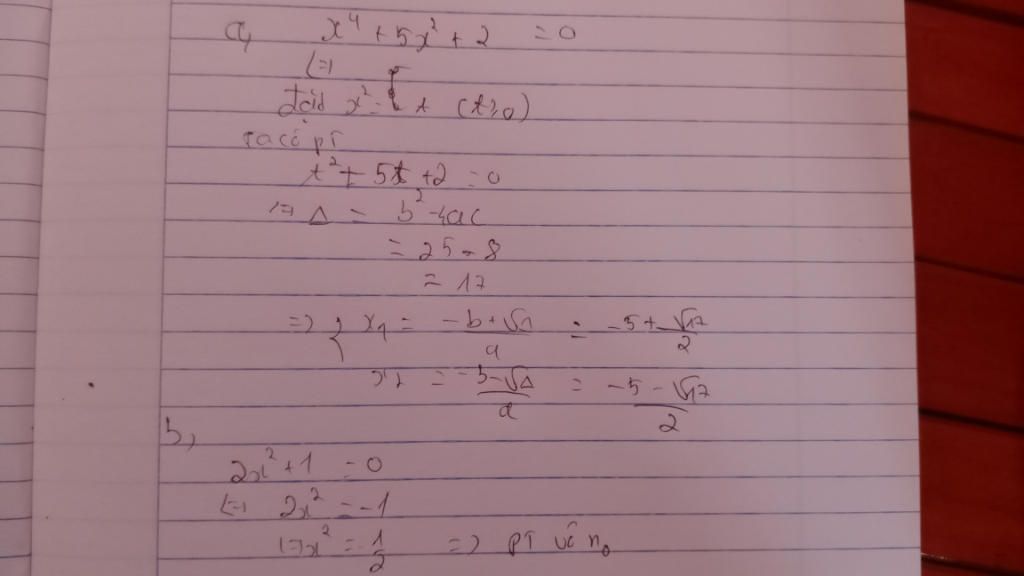 a, x⁴ + 5x² + 2 = 0
<=>
Đặt x² = t (t ≥ 0)
ta có pt
t² + 5t + 2 = 0
<=> Δ = b² - 4ac
= 25 - 8
= 17
=> { x₁ = (-b + √Δ)/a = (-5 + √17)/2
x₂ = (-b - √Δ)/a = (-5 - √17)/2
b,
2x² + 1 = 0
<=> 2x² = -1
<=> x² = -1/2 => PT vô n₀